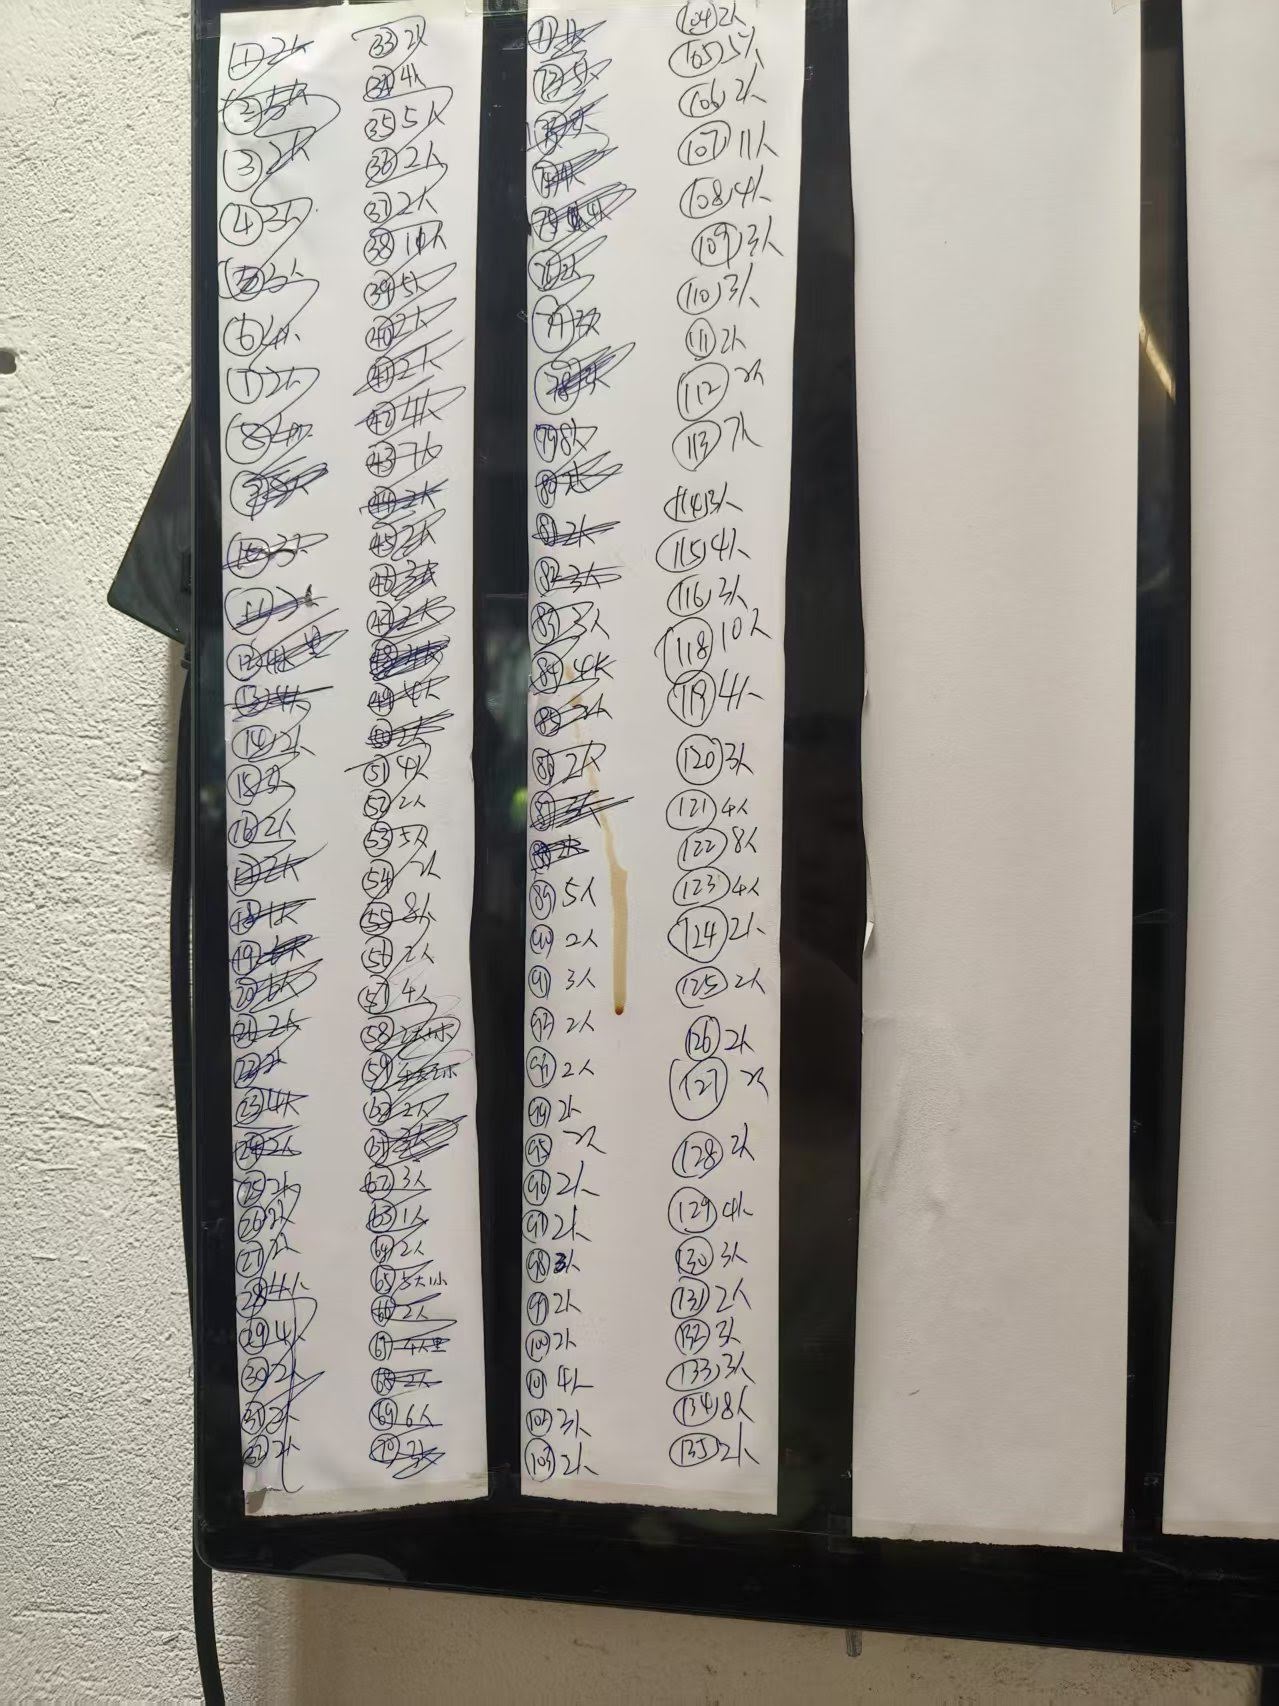 ① 2人
② 5人
③ 2人
④ 3人
6 4人
7 2人
⑧ 4人
⑩ 3人
⑫ 4人 里
⑬ 4人
⑭ 2人
⑯ 2人
⑰ 2人
⑱ 1人
⑲ 6人
⑳ 6人
㉑ 2人
㉒ 2人
㉓ 4人
㉔ 2人
㉕ 2人
㉖ 2人
㉗ 2人
㉘ 4人
㉙ 4人
㉚ 2人
㉛ 2人
㉜ 2人
㉝ 2人
㉞ 4人
㉟ 5人
㊱ 2人
㊲ 2人
㊳ 10人
㊴ 5人
㊵ 2人
㊶ 2人
㊷ 4人
㊸ 7人
㊹ 2人
㊺ 2人
㊻ 3人
㊼ 2人
㊾ 4人
㊿ 2人
51 4人
52 2人
53 5人
54 2人
55 8人
56 2人
57 4人
58 2大1小
62 3人
63 1人
64 2人
65 5大1小
66 2人
67 4人里
68 2人
69 6人
70 2人
72 5人
76 2人
77 3人
79 8人
81 2人
82 3人
83 3人
84 4人
85 2人
86 2人
87 3人
88 2人
89 5人
90 2人
91 3人
92 2人
93 2人
94 2人
95 2人
96 2人
97 2人
98 3人
99 2人
100 2人
101 4人
102 3人
103 2人
104 2人
105 5人
106 2人
107 11人
108 4人
109 3人
110 3人
111 2人
112 2人
113 7人
114 3人
115 4人
116 3人
118 10人
119 4人
120 3人
121 4人
122 8人
123 4人
124 2人
125 2人
126 2人
127 2人
128 2人
129 4人
130 3人
131 2人
132 3人
133 3人
134 8人
135 2人